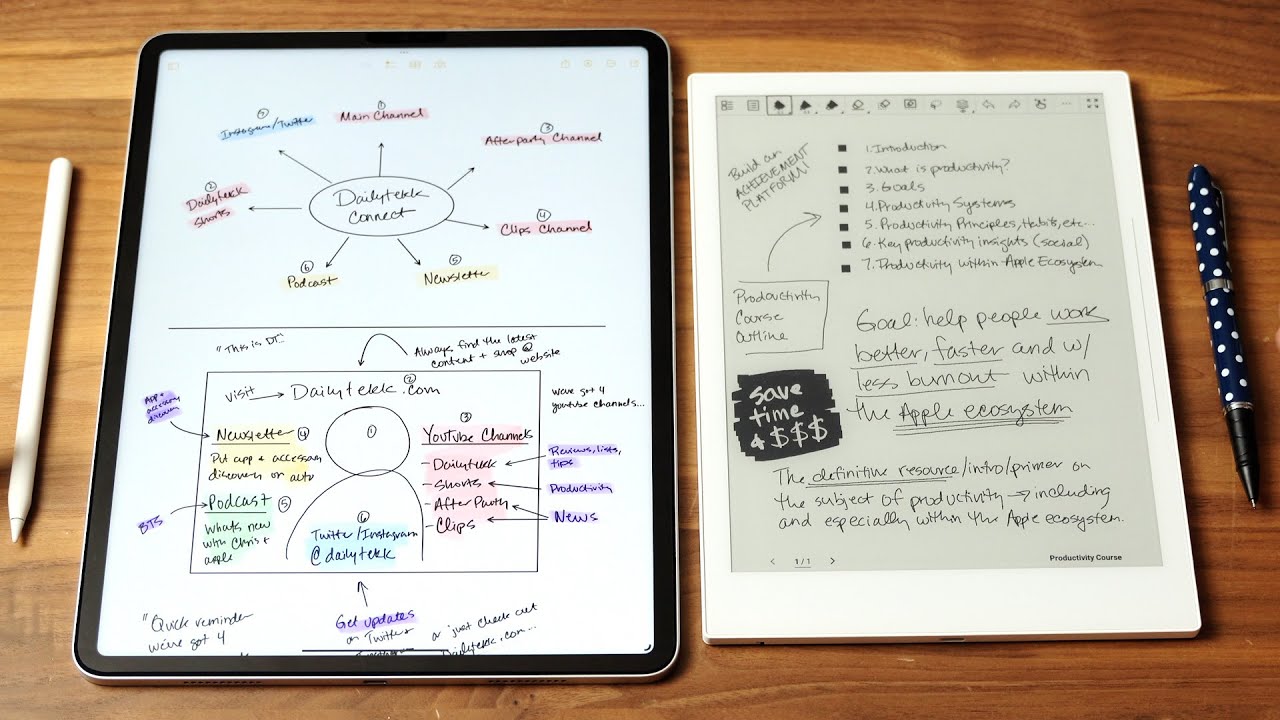 ⑦
Instagram/Twitter
①
Main Channel
③
Afterparty Channel
②
Dailytekk
Shorts
Dailytekk
Connect
④
Clips Channel
⑥
Podcast
⑤
Newsletter
"This is DT..."
Always find the latest
content + shop @
website
visit → Dailytekk.com
②
App +
accessory
discovery
we've got 4
youtube channels...
Newsletter ④
Put app + accessory
discovery on auto
Podcast ⑤
Whats new
with Chris +
apple
BTS
①
③
Youtube Channels
- Dailytekk
- Shorts
- After Party
- Clips
Reviews, lists,
tips
Productivity
News
⑥
Twitter/Instagram
@dailytekk
"Quick reminder
we've got 4
Get updates
on Twitter
Instagram
or just check out
Dailytekk.com...
Build an
ACHIEVEMENT
PLATFORM!
1. Introduction
2. What is productivity?
3. Goals
4. Productivity Systems
5. Productivity Principles, Habits, etc...
6. Key productivity insights (social)
7. Productivity within Apple Ecosystem
Productivity
Course
Outline
Goal: help people work
better, faster and w/
less burnout within
the Apple ecosystem
save
time
+ $$$
The definitive resource/intro/primer on
the subject of productivity → including
and especially within the Apple ecosystem.
< 1/1 >
Productivity Course